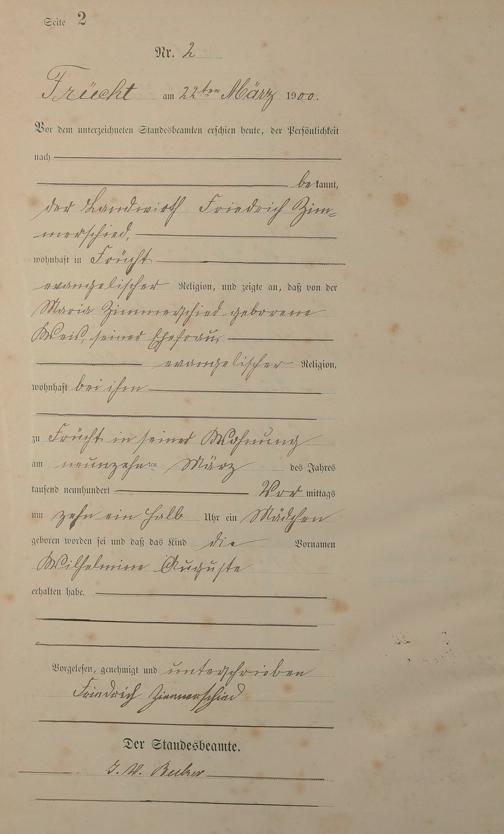 Seite 2
Nr. 2
Frücht am 22ten März 1900.
Vor dem unterzeichneten Standesbeamten erschien heute, der Persönlichkeit
nach
bekannt,
der Landwirth Friedrich Zim=
merschied,
wohnhaft in Frücht
evangelischer Religion, und zeigte an, daß von der
Maria Zimmerschied geborene
seiner Ehefrau,
evangelischer Religion,
wohnhaft bei ihm
zu Frücht in seiner Wohnung
am neunzehnten März des Jahres
tausend neunhundert Vor mittags
um zehn ein halb Uhr ein Mädchen
geboren worden sei und daß das Kind die Vornamen
Wilhelmine Auguste
erhalten habe.
Vorgelesen, genehmigt und unterschrieben
Friedrich Zimmerschied
Der Standesbeamte.
J. V. Becker